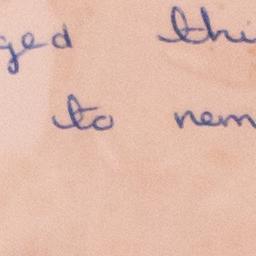 ged thi
to nem